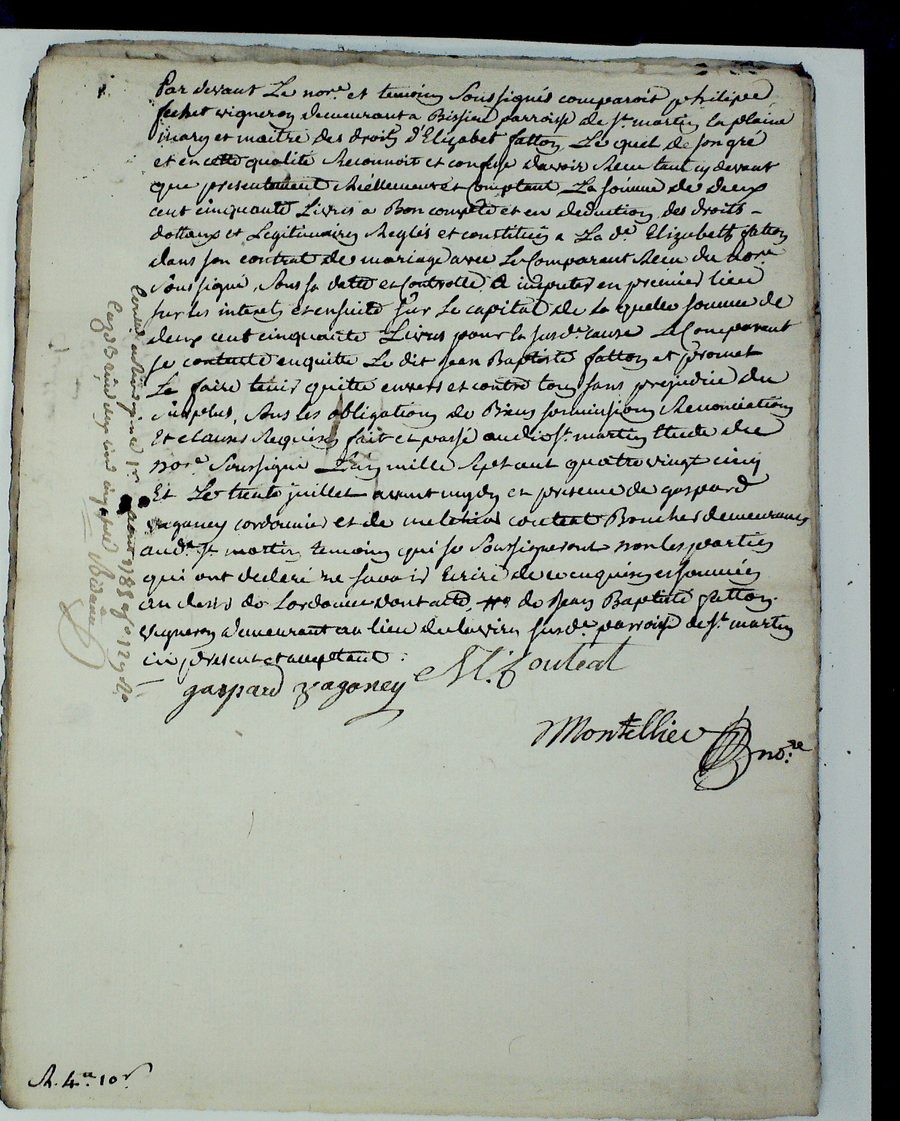 Par devant Le nore et temoins Soussignés comparoit philippe
fechet vigneron demeurant a Bissieu parroisse de st martin la plaine
mary et maitre des droits d'Elizabet fatton Le quel de son gré
et en cette qualité Reconnoit et confesse d'avoir Recu tant cy devant
que presentement Réellement et Comptant La somme de deux
cent cinquante Livres a Bon compte et en deduction des droits
dottaux et Legitimaires Reglés et constitués a La de Elizabeth fatton
dans son contrat de mariage avec Le Comparant Recu du nore
Soussigné, Sous sa datte et Controlle & imputés en premier lieu
sur les interets et ensuite sur Le capital de la quelle somme de
deux cent cinquante Livres pour la susde cause Le Comparant
se contente en quitte Le dit Jean Baptiste fatton et promet
Le faire tenir quitte envers et contre tous sans prejudice du
surplus, Sous les obligations de Biens soumissions Renonciations
Et clauses Requises fait et passé audit st martin Etude du
nore Soussigné L'an mille Sept cent quatre vingt cinq
Et Le trente juillet avant midy en presence de gaspard
vaganey cordonnier et de melchior couteat Boucher demeurants
aud. st martin temoins qui se Soussigneront non les parties
qui ont declaré ne savoir Ecrire de ce enquises et sommées
au desir de Lordonce dont acte, de Jean Baptiste fatton
vigneron demeurant au lieu de susde parroisse de st martin
ici present et acceptant :
gaspard vaganey M. Couteat
Montellier nore
Controllé a Rive de gier le 1r aout 1785 fo 12 vo
Reçu
R. 4u 10s